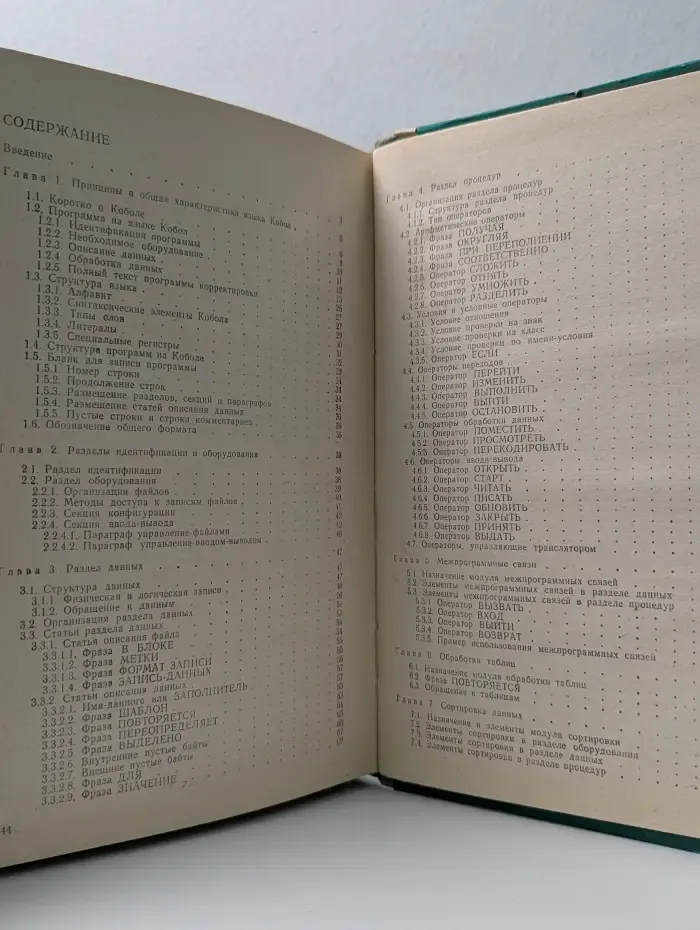 СОДЕРЖАНИЕ
Введение
Глава 1. Принципы и общая характеристика языка Кобол 3
1.1. Коротко о Коболе
1.2. Программа на языке Кобол
1.2.1. Идентификация программы
1.2.2. Необходимое оборудование
1.2.3. Описание данных
1.2.4 Обработка данных
1.2.5. Полный текст программы корректировки
1.3. Структура языка
1.3.1. Алфавит
1.3.2. Синтаксические элементы Кобола
1.3.3. Типы слов
1.3.4. Литералы
1.3.5. Специальные регистры
1.4. Структура программ на Коболе
1.5. Бланк для записи программы
1.5.1 Номер строки
1.5.2. Продолжение строк
1.5.3. Размещение разделов, секций и параграфов
1.5.4. Размещение статей описания данных
1.5.5. Пустые строки и строки комментариев
1.6. Обозначение общего формата
Глава 2. Разделы идентификации и оборудования 38
2.1. Раздел идентификации 38
2.2. Раздел оборудования
2.2.1. Организация файлов
2.2.2. Методы доступа к записям файлов
2.2.3 Секция конфигурации
2.2.4. Секция ввода-вывода
2.2.4.1. Параграф управление-файлами
2.2.4.2. Параграф управление-вводом-выводом
Глава 3. Раздел данных 47
3.1. Структура данных
3.1.1 Физическая и логическая записи
3.1.2. Обращение к данным
3.2. Организация раздела данных
3.3. Статьи раздела данных
3.3.1. Статья описания файла
3.3.1.1. Фраза В БЛОКЕ
3.3.1.2. Фраза МЕТКИ
3.3.1.3. Фраза ФОРМАТ ЗАПИСИ
3.3.1.4. Фраза ЗАПИСЬ-ДАННЫХ
3.3.2. Статьи описания данных
3.3.2.1. Имя-данного или ЗАПОЛНИТЕЛЬ
3.3.2.2. Фраза ШАБЛОН
3.3.2.3. Фраза ПОВТОРЯЕТСЯ
3.3.2.4. Фраза ПЕРЕОПРЕДЕЛЯЕТ
3.3.2.5 Фраза ВЫДЕЛЕНО
3.3.2.6. Внутренние пустые байты
3.3.2.7. Внешние пустые байты
3.3.2.8. Фраза ДЛЯ
3.3.2.9. Фраза ЗНАЧЕНИЕ
44
Глава 4. Раздел процедур
4.1. Организация раздела процедур
4.1.1. Структура раздела процедур
4.1.2. Тип операторов
4.2 Арифметические операторы
4.2.1. Фраза ПОЛУЧАЯ
4.2.2. Фраза ОКРУГЛЯЯ
4.2.3. Фраза ПРИ ПЕРЕПОЛНЕНИИ
4.2.4. Фраза СООТВЕТСТВЕННО
4.2.5. Оператор СЛОЖИТЬ
4.2.6. Оператор ОТНЯТЬ
4.2.7. Оператор УМНОЖИТЬ
4.2.8. Оператор РАЗДЕЛИТЬ
4.3. Условия и условные операторы
4.3.1. Условие отношения
4.3.2. Условие проверки на знак
4.3.3. Условие проверки на класс
4.3.4. Условие проверки по имени-условия
4.3.5. Оператор ЕСЛИ
4.4. Операторы переходов
4.4.1. Оператор ПЕРЕЙТИ
4.4.2. Оператор ИЗМЕНИТЬ
4.4.3. Оператор ВЫПОЛНИТЬ
4.4.4. Оператор ВЫЙТИ
4.4.5. Оператор ОСТАНОВИТЬ
4.5. Операторы обработки данных
4.5.1. Оператор ПОМЕСТИТЬ
4.5.2 Оператор ПРОСМОТРЕТЬ
4.5.3 Оператор ПЕРЕКОДИРОВАТЬ
4.6. Операторы ввода-вывода
4.6.1. Оператор ОТКРЫТЬ
4.6.2. Оператор СТАРТ
4.6.3. Оператор ЧИТАТЬ
4.6.4. Оператор ПИСАТЬ
4.6.5. Оператор ОБНОВИТЬ
4.6.6. Оператор ЗАКРЫТЬ
4.6.7 Оператор ПРИНЯТЬ
4.6.8. Оператор ВЫДАТЬ
4.7. Операторы, управляющие транслятором
Глава 5. Межпрограммные связи
5.1. Назначение модуля межпрограммных связей
5.2. Элементы межпрограммных связей в разделе данных
5.3. Элементы межпрограммных связей в разделе процедур
5.3.1. Оператор ВЫЗВАТЬ
5.3.2. Оператор ВХОД
5.3.3. Оператор ВЫЙТИ
5.3.4. Оператор ВОЗВРАТ
5.3.5. Пример использования межпрограммных связей
Глава 6. Обработка таблиц
6.1. Назначение модуля обработки таблиц
6.2. Фраза ПОВТОРЯЕТСЯ
6.3. Обращение к таблицам
Глава 7. Сортировка данных
7.1. Назначение и элементы модуля сортировки
7.2. Элементы сортировки в разделе оборудования
7.3. Элементы сортировки в разделе данных
7.4. Элементы сортировки в разделе процедур